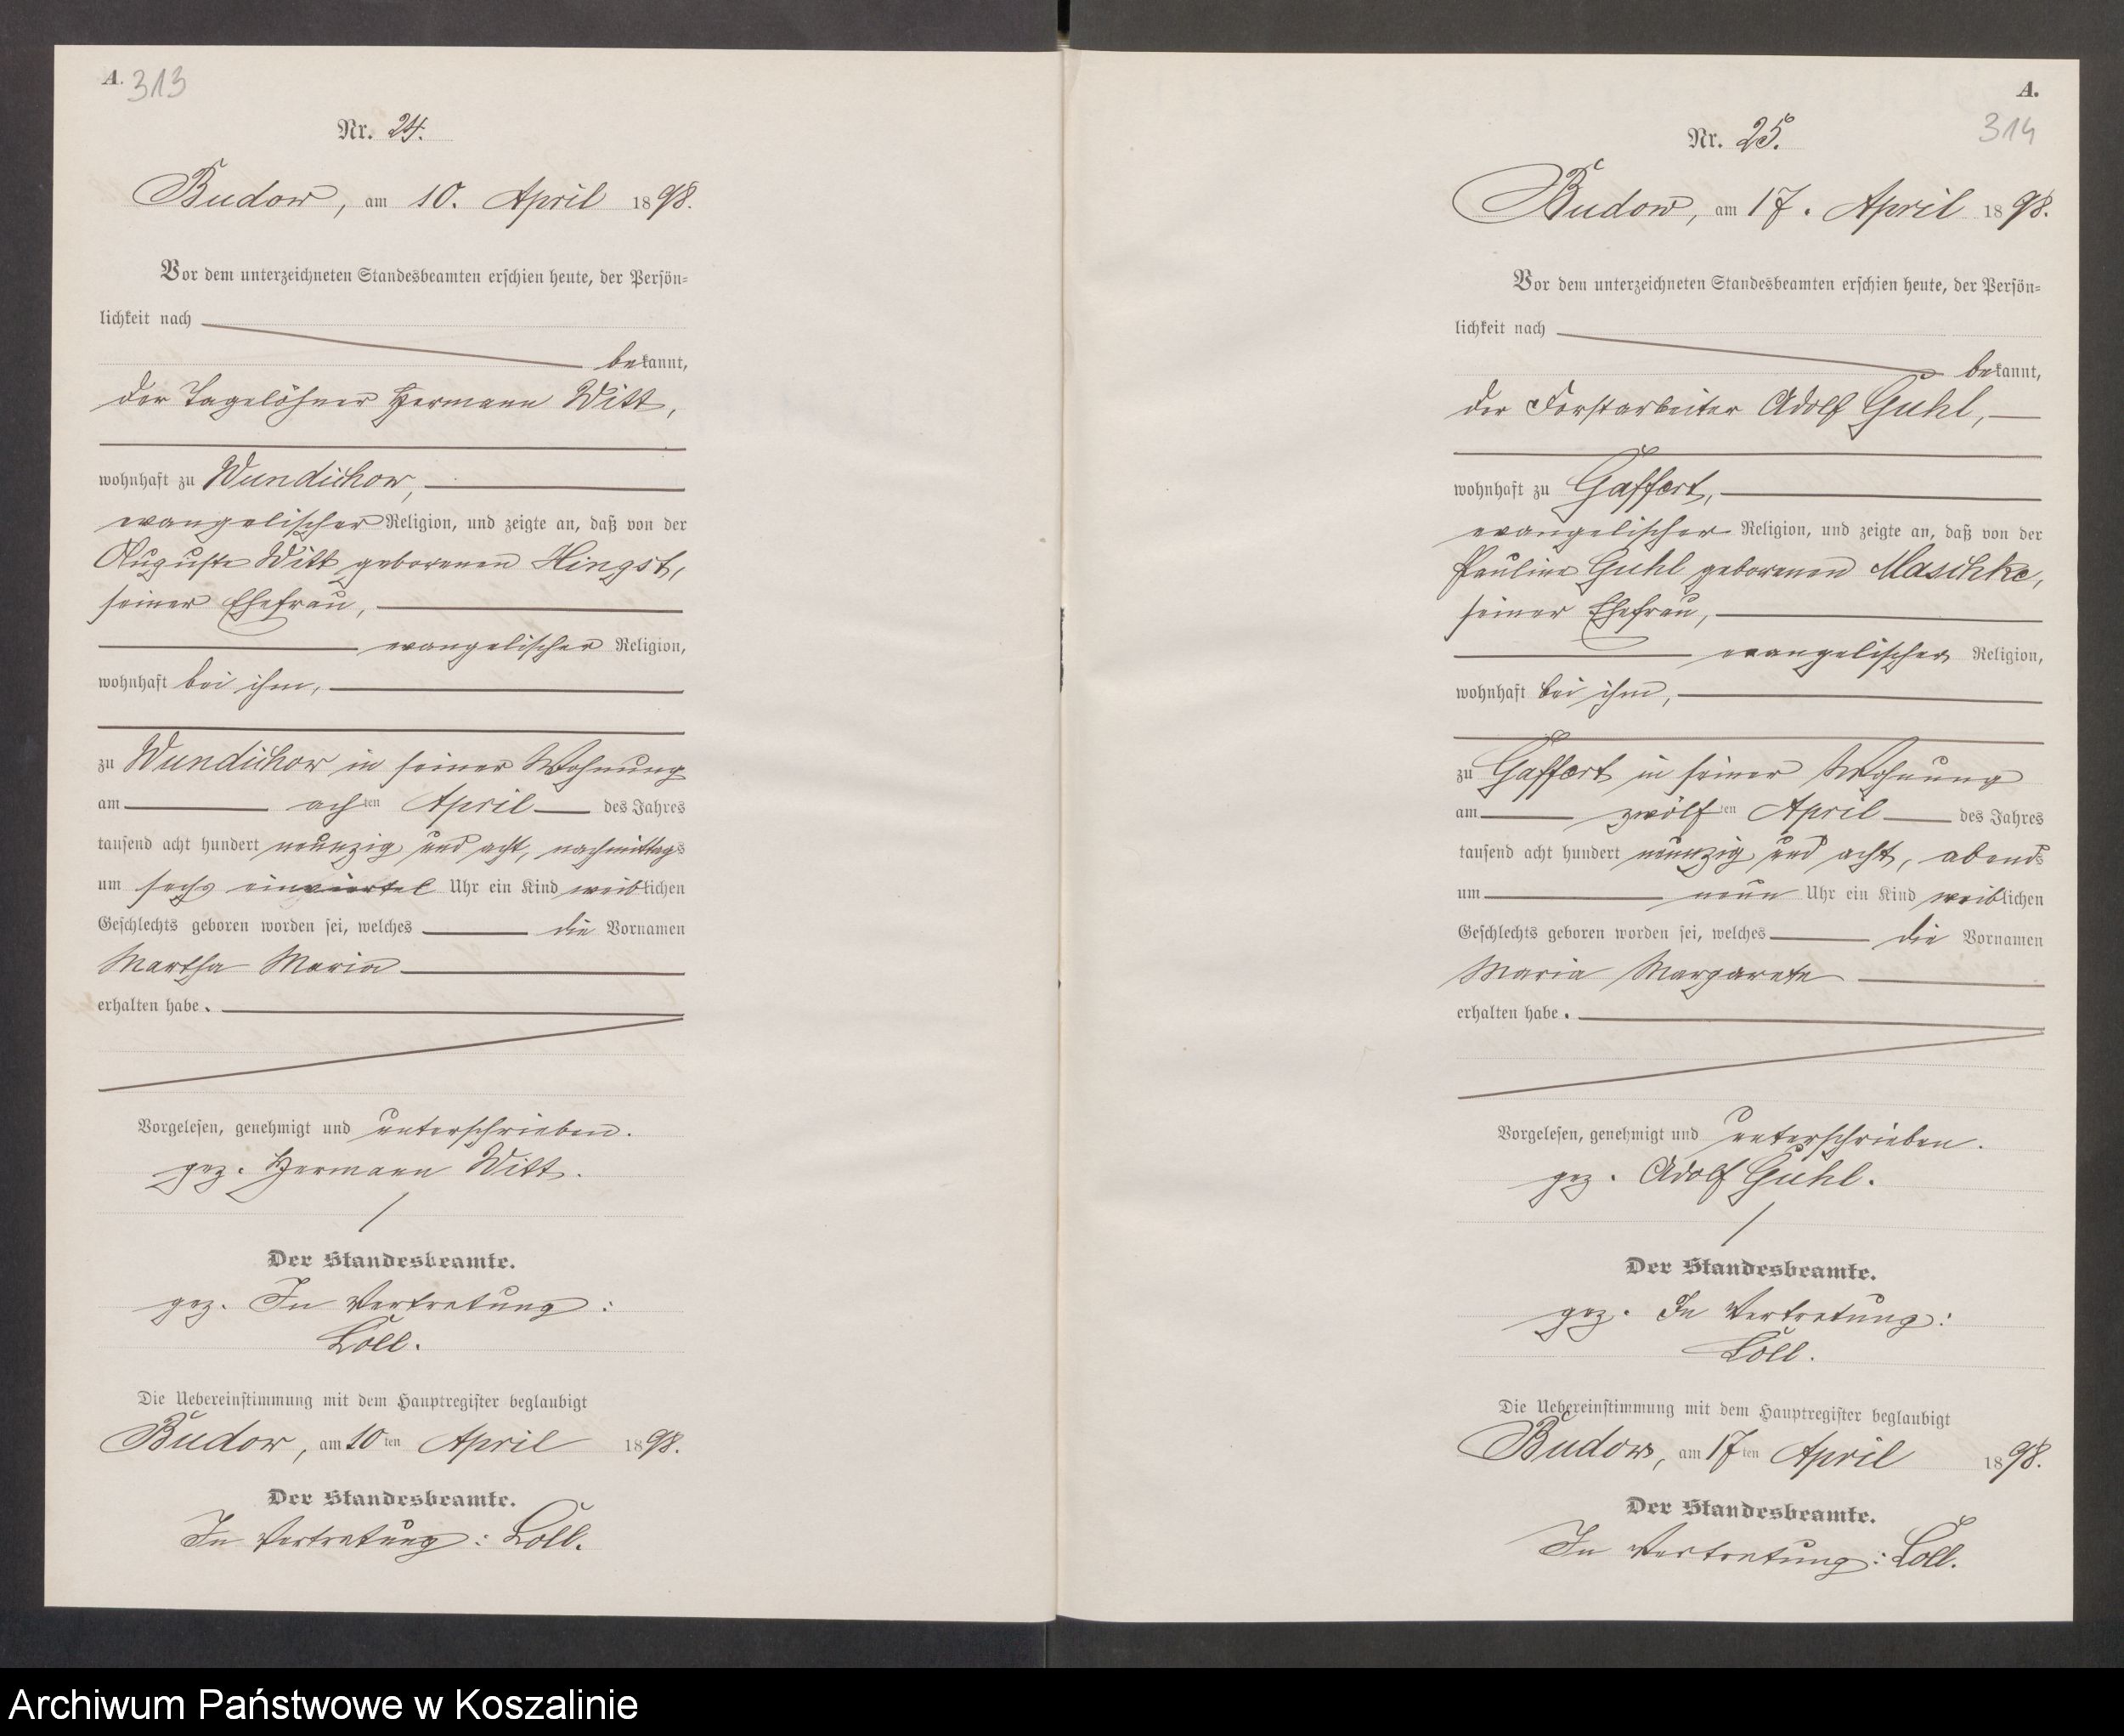 A. 313
Nr. 24.
Budow, am 10. April 1898.
Vor dem unterzeichneten Standesbeamten erschien heute, der Persön-
lichkeit nach
bekannt,
der Tagelöhner Hermann Witt,
wohnhaft zu Wundichow,
evangelischer Religion, und zeigte an, daß von der
Auguste Witt geborenen Hingst,
seiner Ehefrau,
evangelischer Religion,
wohnhaft bei ihm,
zu Wundichow in seiner Wohnung
am achten April des Jahres
tausend acht hundert neunzig und acht, nachmittags
um sechs einviertel Uhr ein Kind weiblichen
Geschlechts geboren worden sei, welches die Vornamen
Martha Maria
erhalten habe.
Vorgelesen, genehmigt und unterschrieben.
gez. Hermann Witt.
Der Standesbeamte.
gez. In Vertretung:
Loll.
Die Uebereinstimmung mit dem Hauptregister beglaubigt
Budow, am 10ten April 1898.
Der Standesbeamte.
In Vertretung: Loll.
A.
314
Nr. 25.
Budow, am 17. April 1898.
Vor dem unterzeichneten Standesbeamten erschien heute, der Persön-
lichkeit nach
bekannt,
der Forstarbeiter Adolf Guhl,
wohnhaft zu Gaffert,
evangelischer Religion, und zeigte an, daß von der
Pauline Guhl geborenen Maschke,
seiner Ehefrau,
evangelischer Religion,
wohnhaft bei ihm,
zu Gaffert in seiner Wohnung
am zwölften April des Jahres
tausend acht hundert neunzig und acht, abends
um neun Uhr ein Kind weiblichen
Geschlechts geboren worden sei, welches die Vornamen
Maria Margarete
erhalten habe.
Vorgelesen, genehmigt und unterschrieben.
gez. Adolf Guhl.
Der Standesbeamte.
gez. In Vertretung:
Loll.
Die Uebereinstimmung mit dem Hauptregister beglaubigt
Budow, am 17ten April 1898.
Der Standesbeamte.
In Vertretung: Loll.
Archiwum Państwowe w Koszalinie